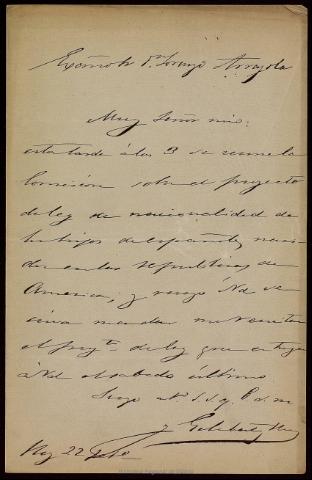 Excmo Sr. Dn Lorenzo Arrazola
Muy Señor mio:
esta tarde á las 3 se reune la
Comision sobre el proyecto
de ley de nacionalidad de
los hijos de españoles, naci
dos en las republicas de
America, y ruego Vd se
sirva mandar
el proyto de ley que entregue
á Vd el sabado último
Suyo
Hoy 22